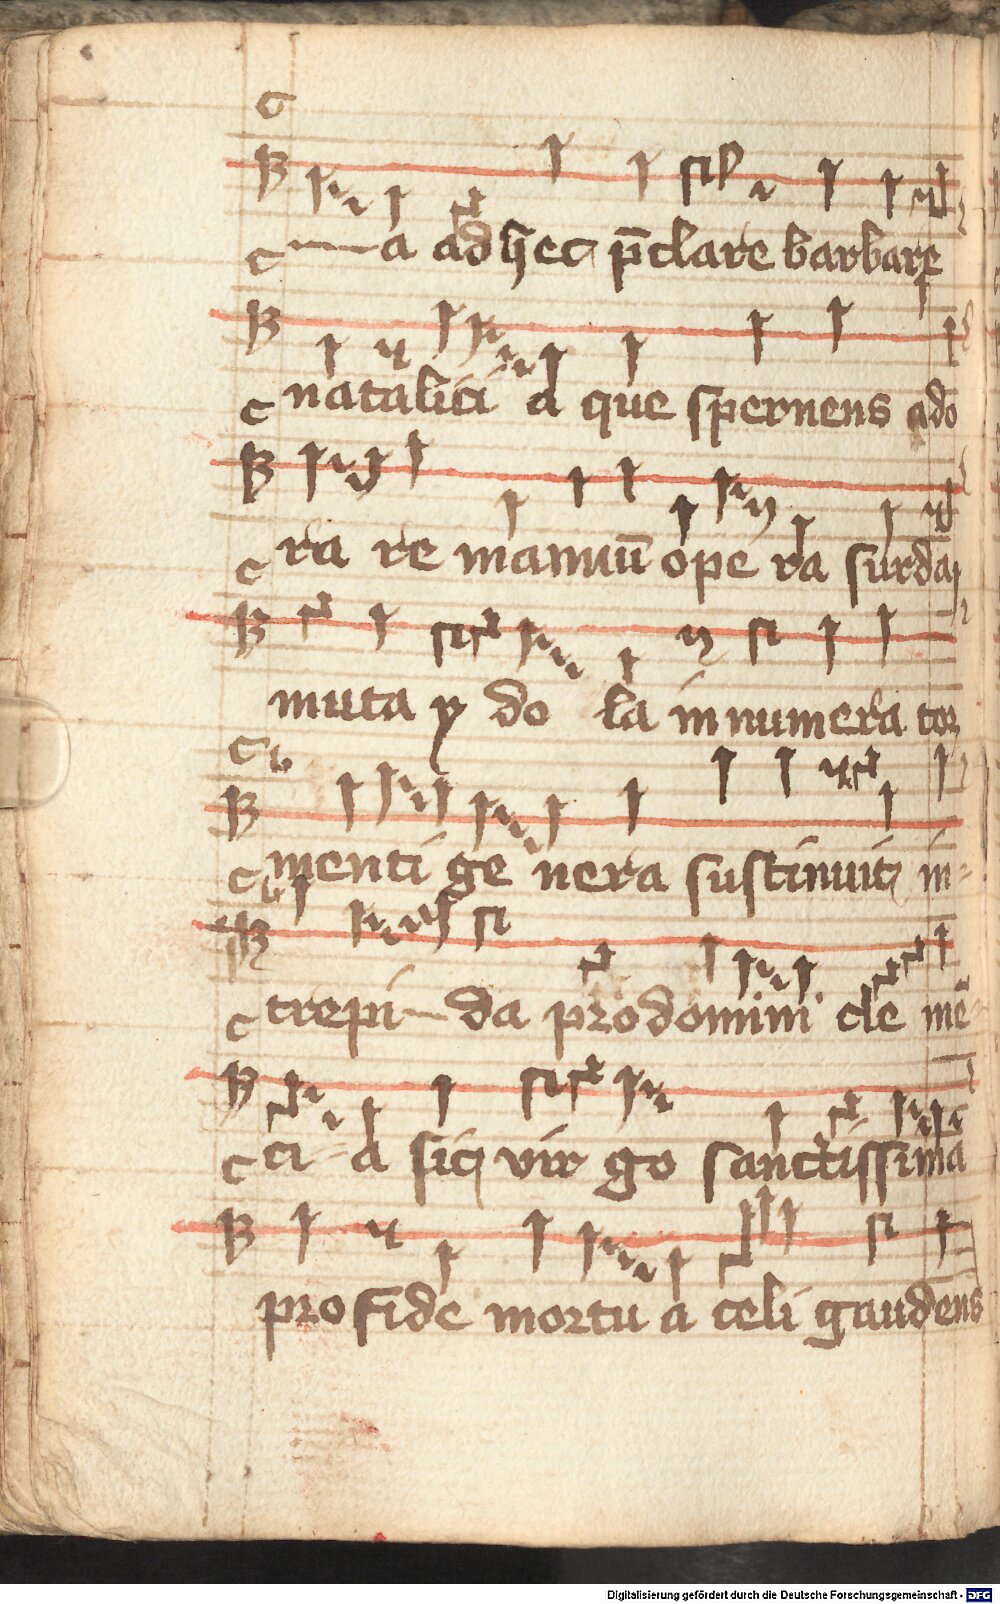 a ad hec p̄clare barbare
natalici a que spernens ado
ra re manuū ope ra surda
muta y do la innumera tor
menti ge nera sustinuit in
trepi da pro domini cle mē
ci a sic vir go sanctissima
pro fide mortu a celi gaudens
Digitalisierung gefördert durch die Deutsche Forschungsgemeinschaft - DFG